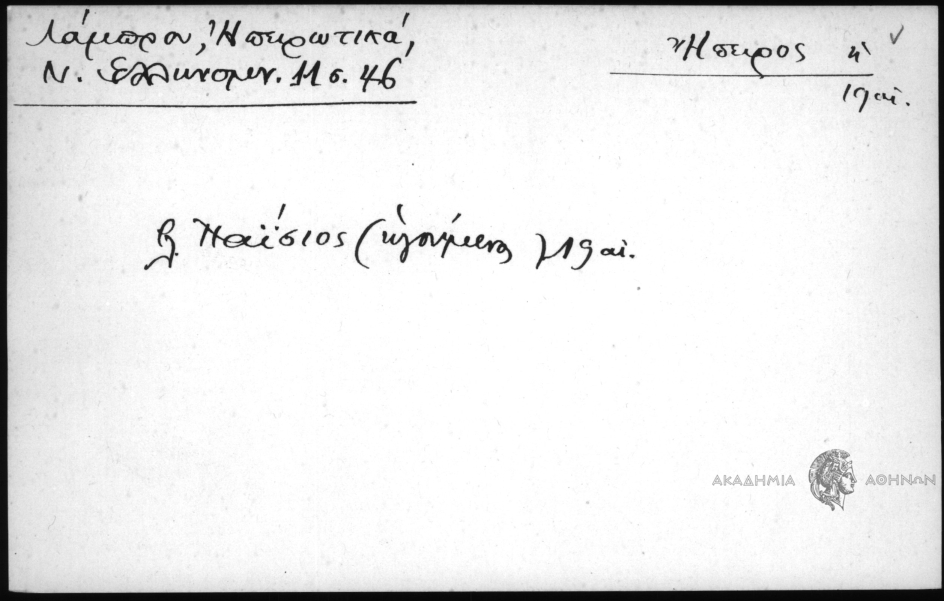 Λάμπρου, Ἠπειρωτικά,
Ν. Ἑλληνομν. 11 σ. 46
Ἤπειρος
19 αἰ.
Παΐσιος (ἡγούμενος) 19 αἰ.
ΑΚΑΔΗΜΙΑ ΑΘΗΝΩΝ